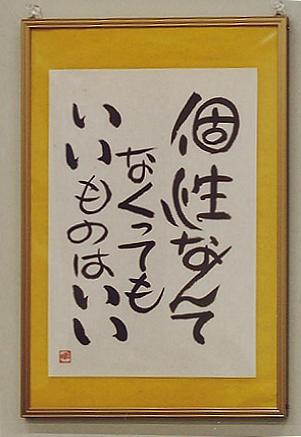 個性なんて
なくっても
いいものはいい